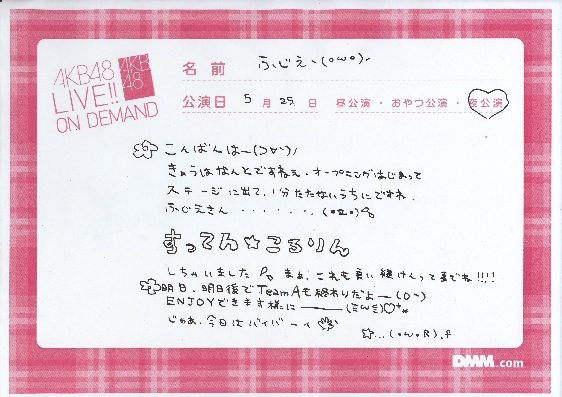 AKB48
LIVE!!
ON DEMAND
AKB
48
名前 ふじえ、(○w○)ﾉ
公演日 5 月 25 日 昼公演・おやつ公演・夜公演
こんばんはー(つ∀`)ﾉ
きょうはなんとですねぇ、オープニングはじまって
ステージに出て、1分たたないうちにですね
ふじえさん・・・・・・、
すってん☆ころりん
しちゃいました まぁ、これも良い経けんってまでね!!!!
明日、明後でTeamAも終わりだよー
ENJOYできます様に
じゃあ、今日はバイバーイ
DMM.com